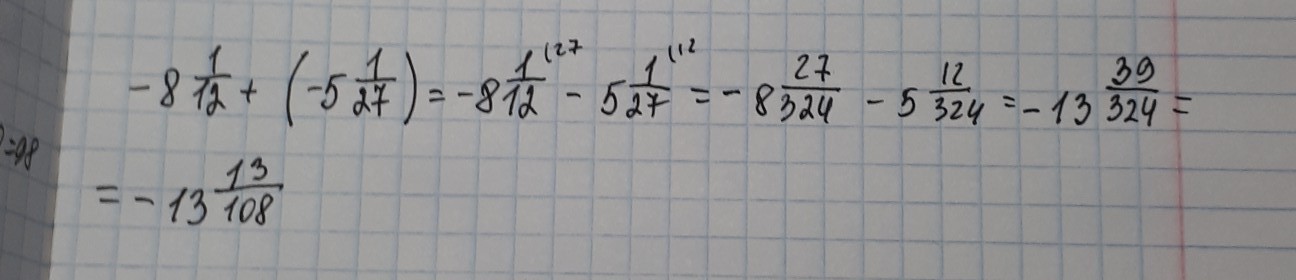 -8 1/12 + (-5 1/27) = -8 1/12 (27 - 5 1/27 (12 = -8 27/324 - 5 12/324 = -13 39/324 =
= -13 13/108